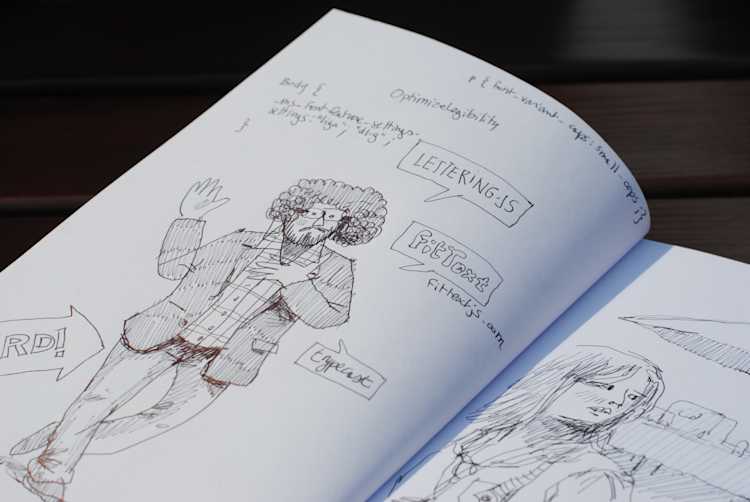 Body {
-ms-font-feature-settings-
settings: "liga", "dlig",
}
OptimizeLegibility
p { font-variant-caps: small-caps; }
LETTERING.JS
FitText
fittextjs.com
RD!
typecast